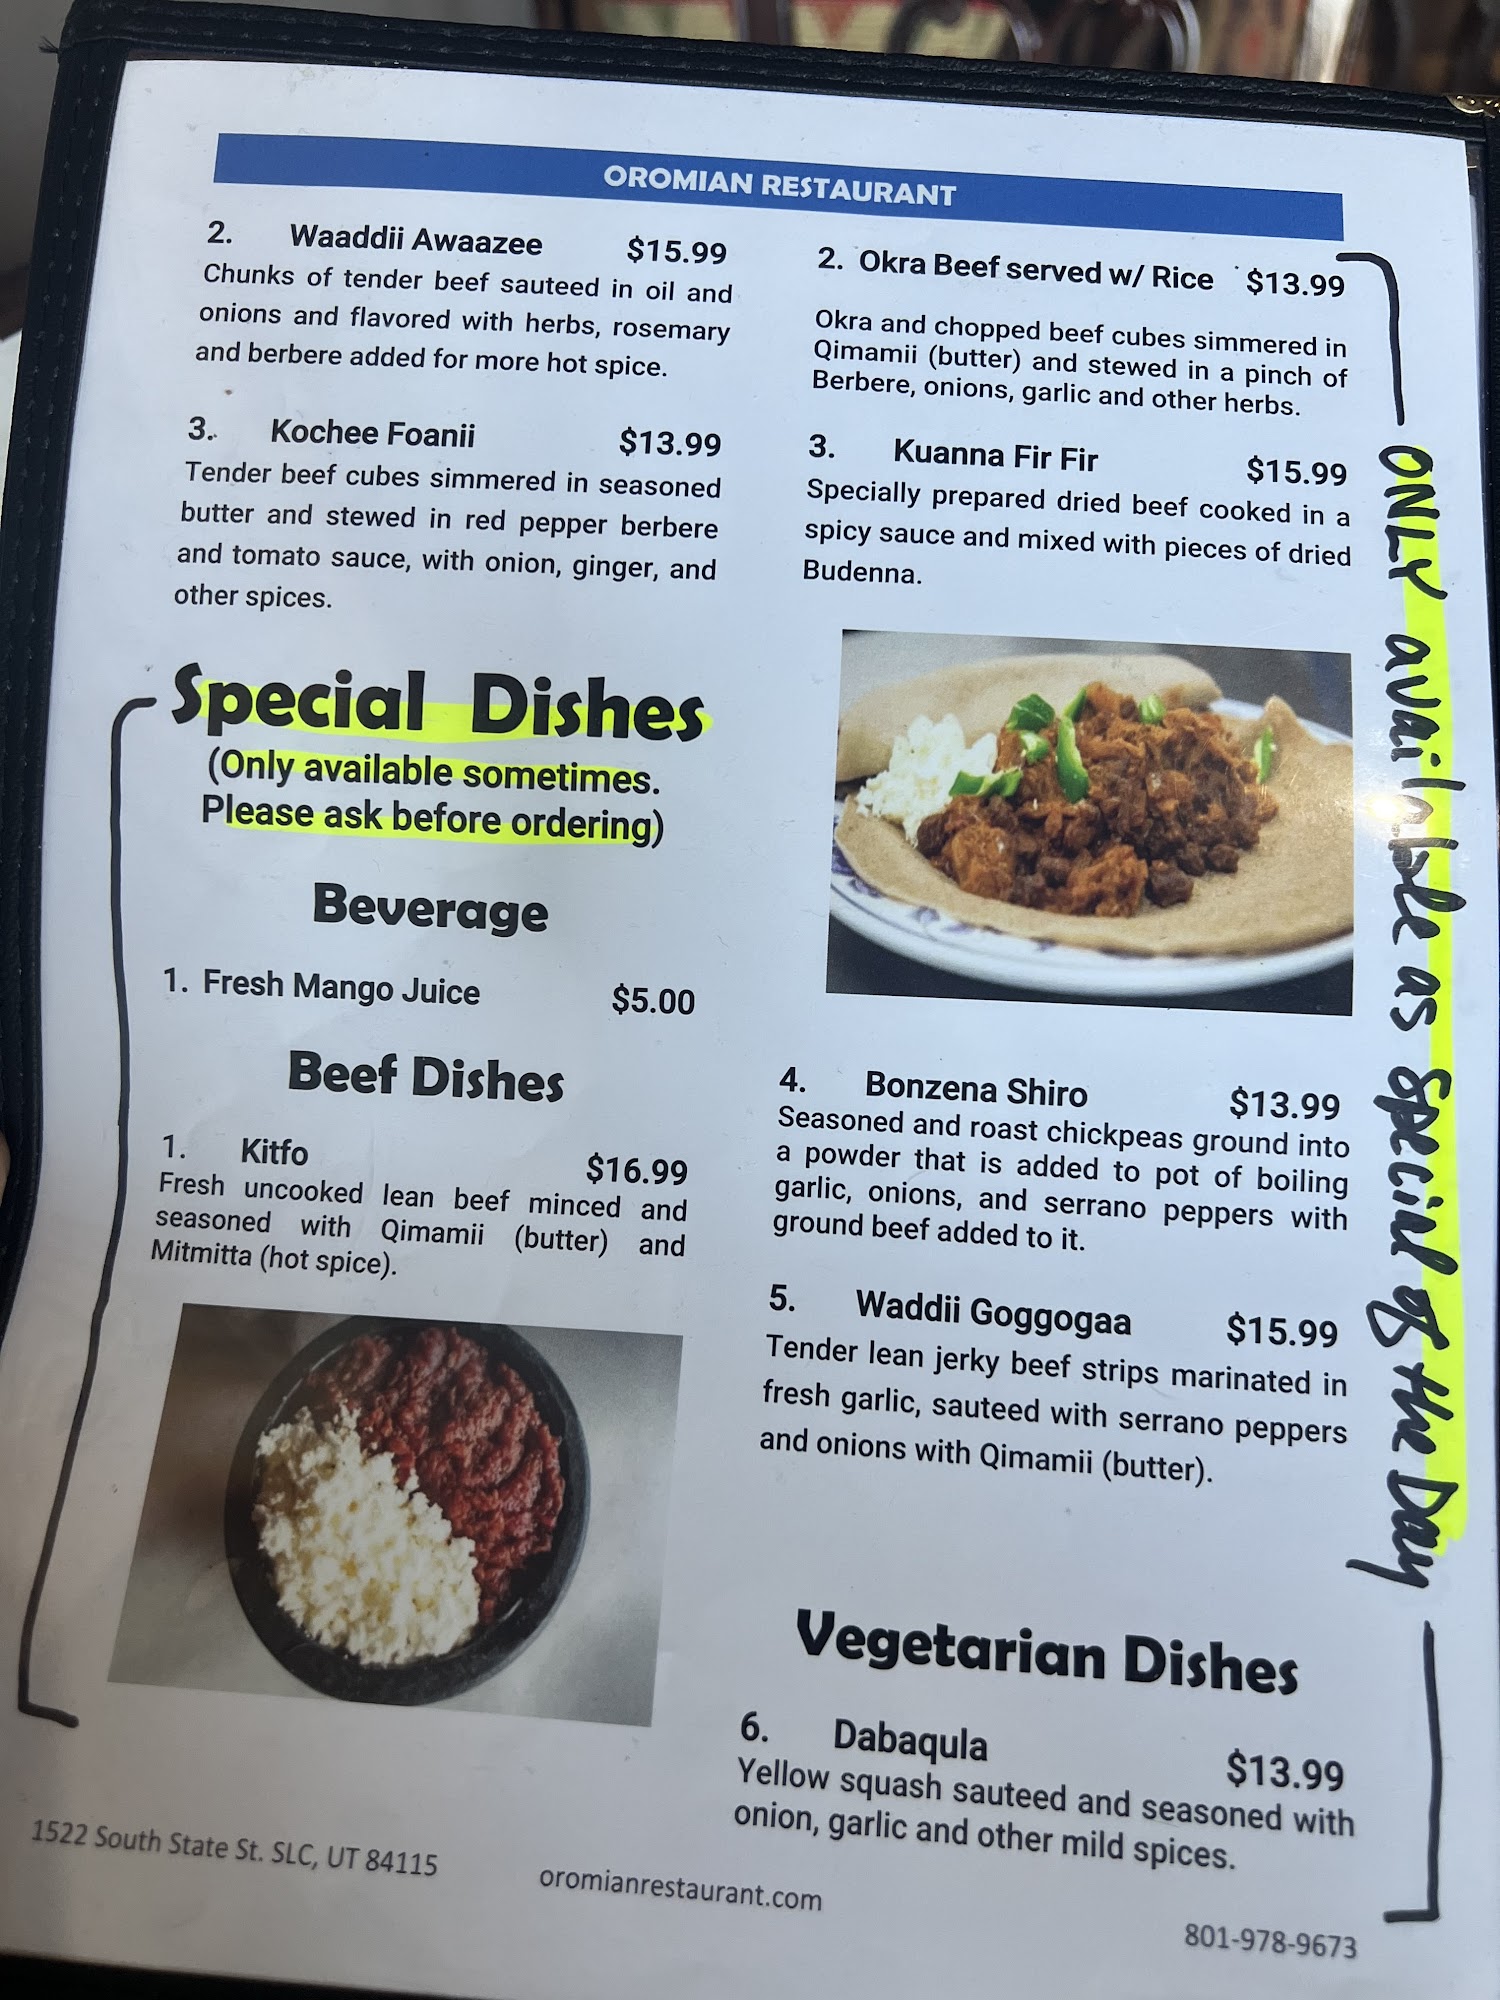 OROMIAN RESTAURANT
2. Waaddii Awaazee $15.99
Chunks of tender beef sauteed in oil and
onions and flavored with herbs, rosemary
and berbere added for more hot spice.
3. Kochee Foanii $13.99
Tender beef cubes simmered in seasoned
butter and stewed in red pepper berbere
and tomato sauce, with onion, ginger, and
other spices.
Special Dishes
(Only available sometimes.
Please ask before ordering)
Beverage
1. Fresh Mango Juice $5.00
Beef Dishes
1. Kitfo $16.99
Fresh uncooked lean beef minced and
seasoned with Qimamii (butter) and
Mitmitta (hot spice).
2. Okra Beef served w/ Rice $13.99
Okra and chopped beef cubes simmered in
Qimamii (butter) and stewed in a pinch of
Berbere, onions, garlic and other herbs.
3. Kuanna Fir Fir $15.99
Specially prepared dried beef cooked in a
spicy sauce and mixed with pieces of dried
Budenna.
4. Bonzena Shiro $13.99
Seasoned and roast chickpeas ground into
a powder that is added to pot of boiling
garlic, onions, and serrano peppers with
ground beef added to it.
5. Waddii Goggogaa $15.99
Tender lean jerky beef strips marinated in
fresh garlic, sauteed with serrano peppers
and onions with Qimamii (butter).
Vegetarian Dishes
6. Dabaqula $13.99
Yellow squash sauteed and seasoned with
onion, garlic and other mild spices.
ONLY available as Special of the Day
1522 South State St. SLC, UT 84115
oromianrestaurant.com
801-978-9673